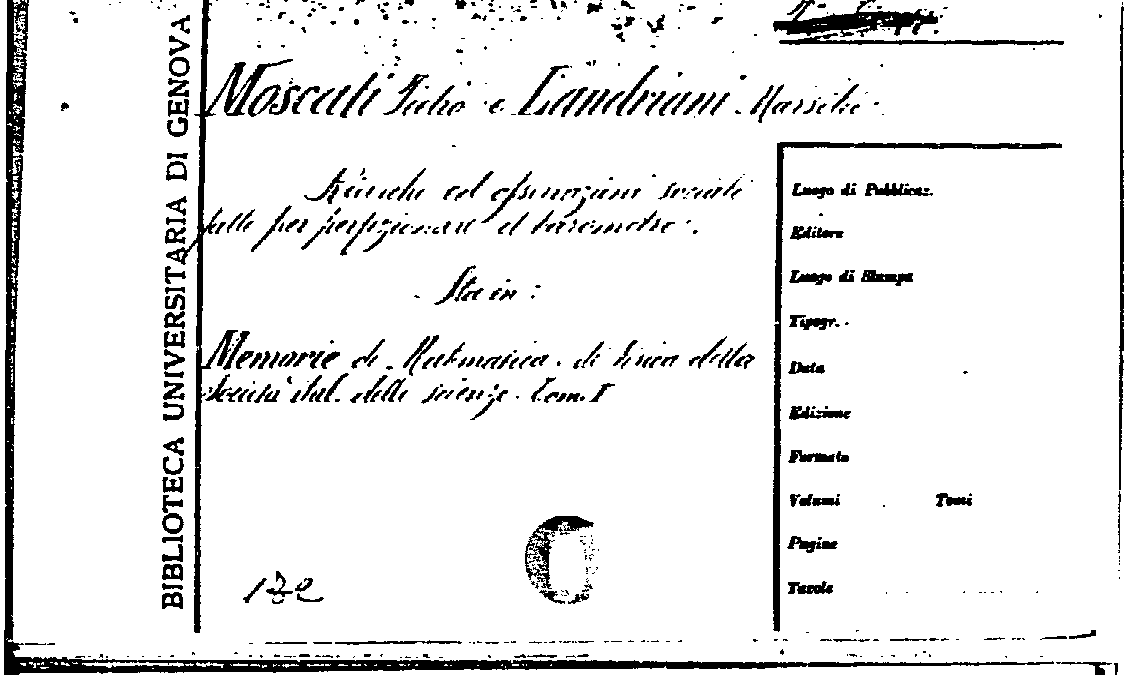 BIBLIOTECA UNIVERSITARIA DI GENOVA
Moscati Pietro e Landriani Marsilio
ed osservazioni
fatte per perfezionare il barometro.
Sta in:
Memorie di Matematica e di fisica della
Società ital. delle scienze. Tom. I
Luogo di Pubblicaz.
Editore
Luogo di Stampa
Tipogr.
Data
Edizione
Formato
Volumi Tomi
Pagine
Tavole